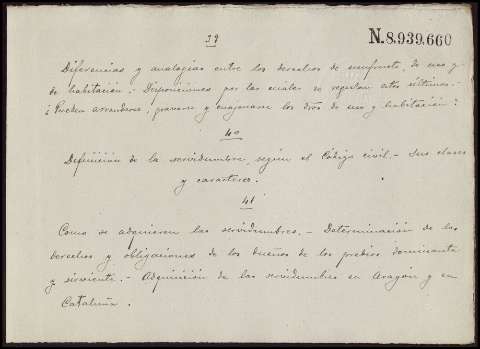 39
N.8.939.660
Diferencias y analogías entre los derechos de usufructo, de uso y
de habitación.- Disposiciones por las cuales se regulan estos últimos.-
¿Pueden arrendarse, gravarse y enajenarse los dros de uso y habitación?
40
Definición de la servidumbre, según el Código civil.- Sus clases
y caracteres.
41
Como se adquieren las servidumbres.- Determinación de los
derechos y obligaciones de los dueños de los predios dominante
y sirviente.- Adquisición de las servidumbres en Aragón y en
Cataluña.